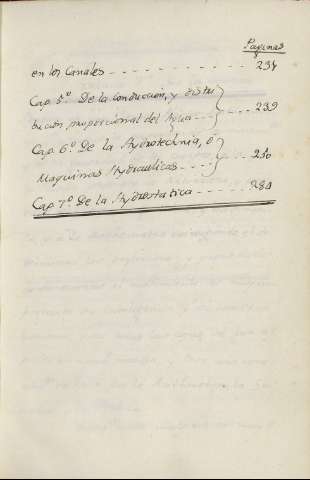 Paginas
en los Canales - - - - - - - - - - 234
Cap. 5º. De la conducción, y distri
bución proporcional del Agua - - - - - 239
Cap. 6º De la Hydrotechnia, ó
Maquinas Hydraulicas - - - - - - 250
Cap. 7º De la Hydrostatica - - - - - 280